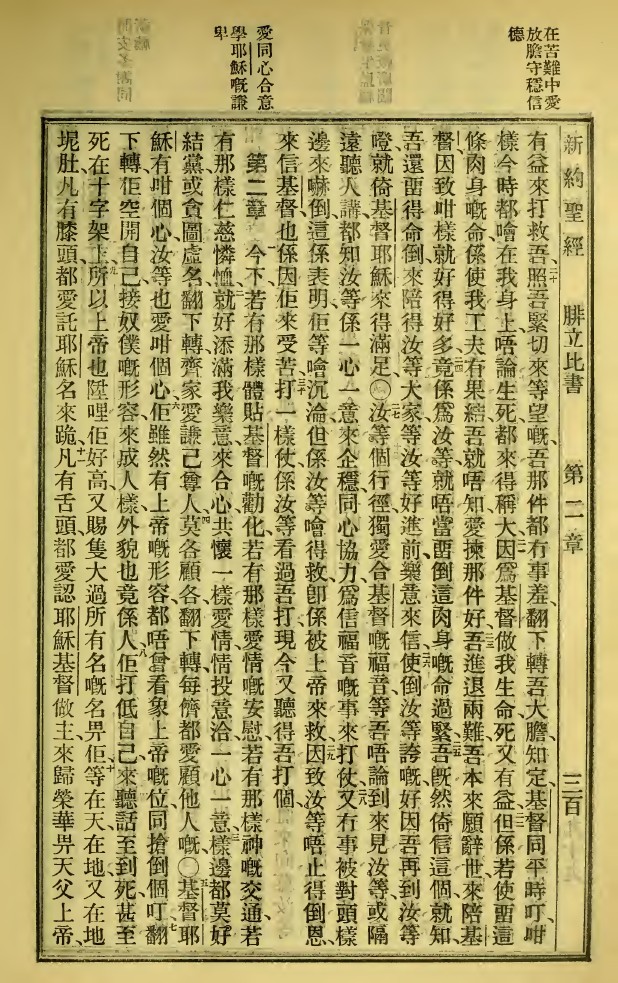 在苦難中愛
放膽守穩信
德
愛同心合意
學耶穌嘅謙
卑
新約聖經 腓立比書 第二章 三百
有益來打救吾照吾緊切來等望嘅吾那件都冇事羞翻下轉吾大膽知定基督同平時叮咁
樣今時都噲在我身上唔論生死都來得稱大因爲基督做我生命死又有益但係若使畱這
條肉身嘅命係使我工夫有果結吾就唔知愛揀那件好吾進退兩難吾本來願辭世來陪基
督因致咁樣就好得好多竟係爲汝等就唔當畱倒這肉身嘅命過緊吾旣然倚信這個就知
吾還畱得命倒來陪得汝等大家等汝等好進前樂意來信使倒汝等誇嘅好因吾再到汝等
噔就倚基督耶穌來得滿足〇汝等個行徑獨愛合基督嘅福音等吾唔論到來見汝等或隔
遠聽人講都知汝等係一心一意來企穩同心協力爲信福音嘅事來打仗又冇事被對頭樣
邊來嚇倒這係表明佢等噲沉淪但係汝等噲得救卽係被上帝來救因致汝等唔止得倒恩
來信基督也係因佢來受苦打一樣仗係汝等看過吾打現今又聽得吾打個
第二章 今下若有那樣體貼基督嘅勸化若有那樣愛情嘅安慰若有那樣神嘅交通若
有那樣仁慈憐恤就好添滿我樂意來合心共懷一樣愛情情投意洽一心一意樣邊都莫好
結黨或貪圖虛名翻下轉齊家愛謙己尊人莫各顧各翻下轉每儕都愛顧他人嘅〇基督耶
穌有咁個心汝等也愛咁個心佢雖然有上帝嘅形容都唔曾看象上帝嘅位同搶倒個叮翻
下轉佢空開自己接奴僕嘅形容來成人樣外貌也竟係人佢打低自己來聽話至到死甚至
死在十字架上所以上帝也陞哩佢好高又賜隻大過所有名嘅名畀佢等在天在地又在地
坭肚凡有膝頭都愛託耶穌名來跪凡有舌頭都愛認耶穌基督做主來歸榮華畀天父上帝